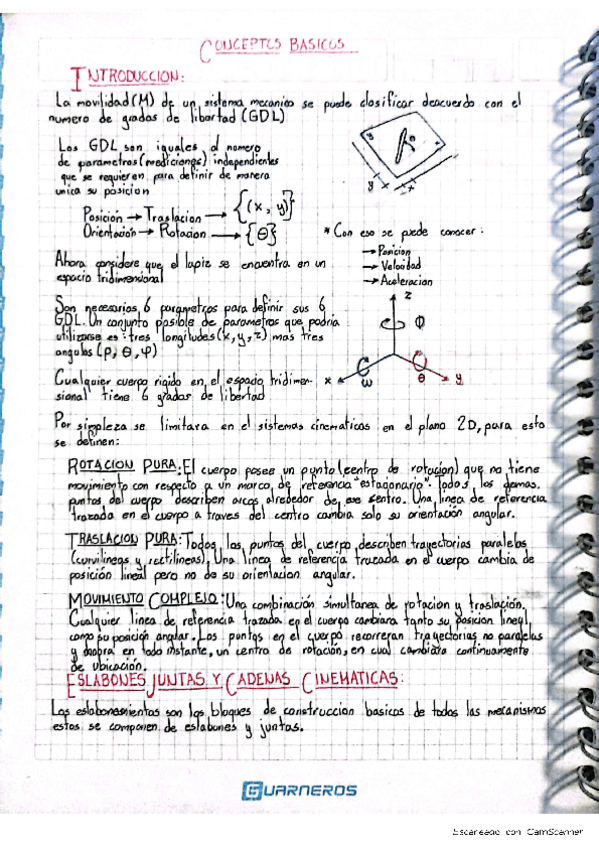 CONCEPTOS BASICOS
INTRODUCCION:
La movilidad (M) de un sistema mecanico se puede clasificar deacuerdo con el
numero de grados de libertad (GDL)
Los GDL son iguales al numero
de parametros (mediciones) independientes
que se requieren para definir de manera
unica su posicion
Posición → Traslacion → {(x, y)}
Orientación → Rotacion → {θ}
y x
* Con eso se puede conocer:
→ Posicion
→ Velocidad
→ Aceleracion
Ahora considere que el lapiz se encuentra en un
espacio tridimensional
Son necesarios 6 parametros para definir sus 6
GDL. Un conjunto posible de parametros que podria
utilizarse es: tres longitudes (x, y, z) mas tres
angulos (ρ, θ, φ)
z
Φ
x
ω
θ
y
Cualquier cuerpo rigido en el espacio tridimen-
sional tiene 6 grados de libertad
Por simpleza se limitara en el sistemas cinematicos en el plano 2D, para esto
se definen:
ROTACION PURA: El cuerpo posee un punto (centro de rotacion) que no tiene
movimiento con respecto a un marco de referencia "estacionario". Todos los demas
puntos del cuerpo describen arcos alrededor de ese centro. Una linea de referencia
trazada en el cuerpo a traves del centro cambia solo su orientación angular.
TRASLACION PURA: Todos los puntos del cuerpo describen trayectorias paralelas
(curvilineas y rectilineas). Una linea de referencia trazada en el cuerpo cambia de
posición lineal pero no de su orientacion angular.
MOVIMIENTO COMPLEJO: Una combinación simultanea de rotacion y traslación.
Cualquier linea de referencia trazada en el cuerpo cambiara tanto su posicion lineal
como su posicion angular. Los puntos en el cuerpo recorreran trayectorias no paralelas
y habra en todo instante, un centro de rotación, en cual cambiara continuamente
de ubicación.
ESLABONES JUNTAS Y CADENAS CINEMATICAS:
Los eslabonamientos son los bloques de construccion basicos de todos los mecanismos
estos se componen de eslabones y juntas.
GUARNEROS
Escaneado con CamScanner